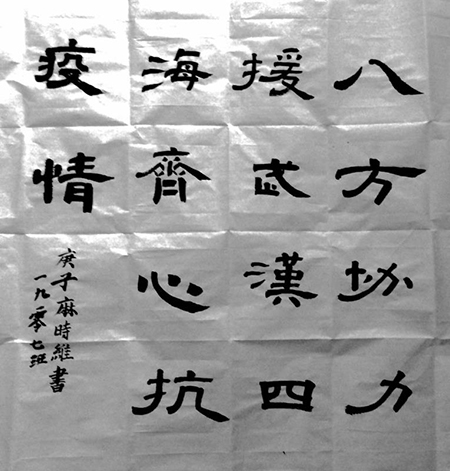 八方协力
援武漢四
海齊心抗
疫情
庚子麻時維書
一九零七班